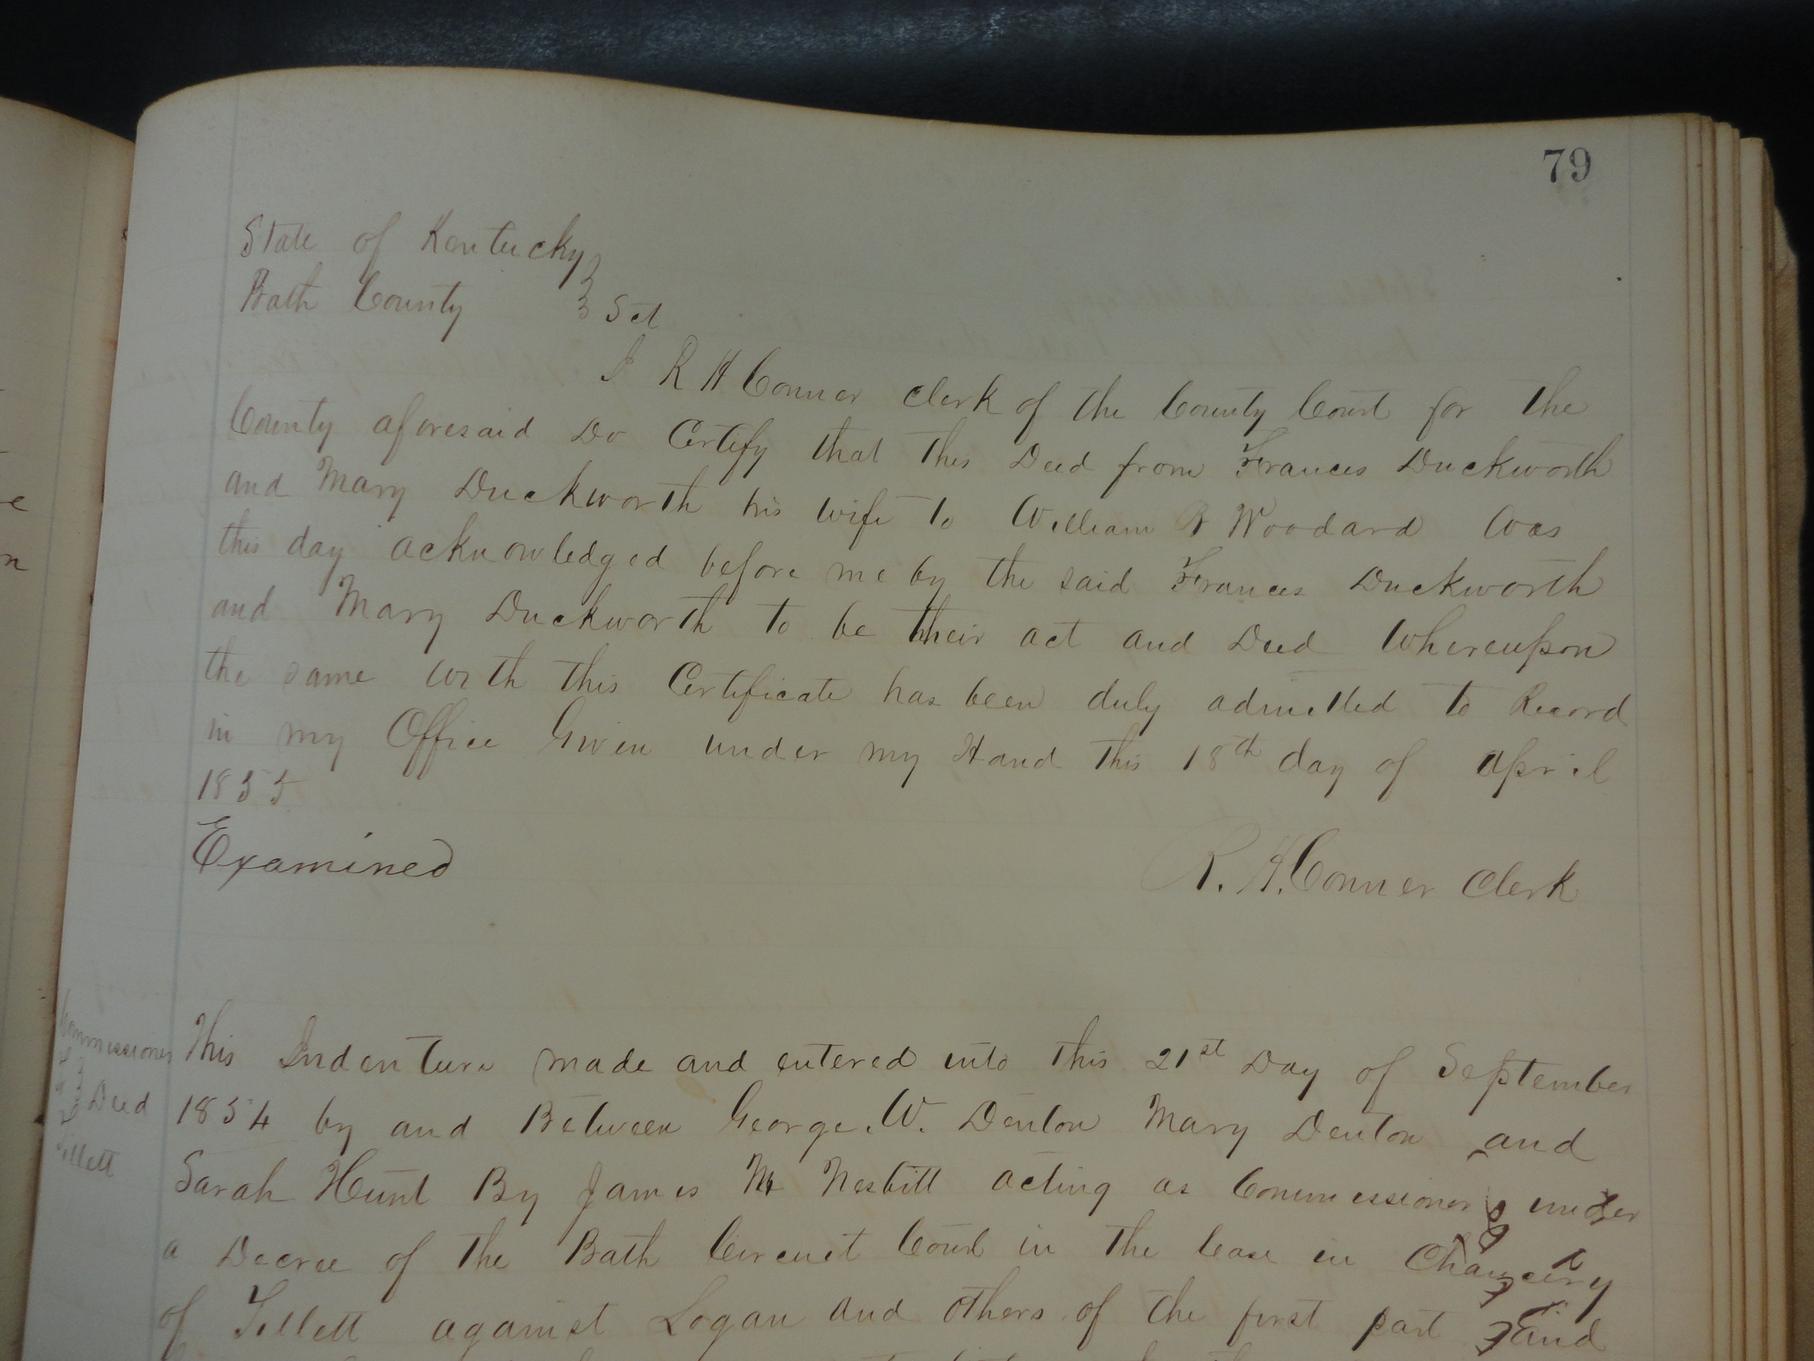 79
State of Kentucky
Bath County Sct
I R H Conner Clerk of the County Court for the
County aforesaid Do Certify that this Deed from Frances Duckworth
and Mary Duckworth his wife to William B Woodard Was
this day acknowledged before me by the said Frances Duckworth
and Mary Duckworth to be their act and Deed Whereupon
the same with this Certificate has been duly admitted to Record
in my Office Given under my Hand this 18th day of April
1855
Examined
R. H. Conner Clerk
This Indenture made and entered into this 21st Day of September
1854 by and Between George. W. Denton Mary Denton and
Sarah Hunt By James M Nesbitt acting as Commissioner under
a Decree of the Bath Circuit Court in the Case in Chancery
of Tillett against Logan and others of the first part and
Commissioner
Deed
Tillett
e
n